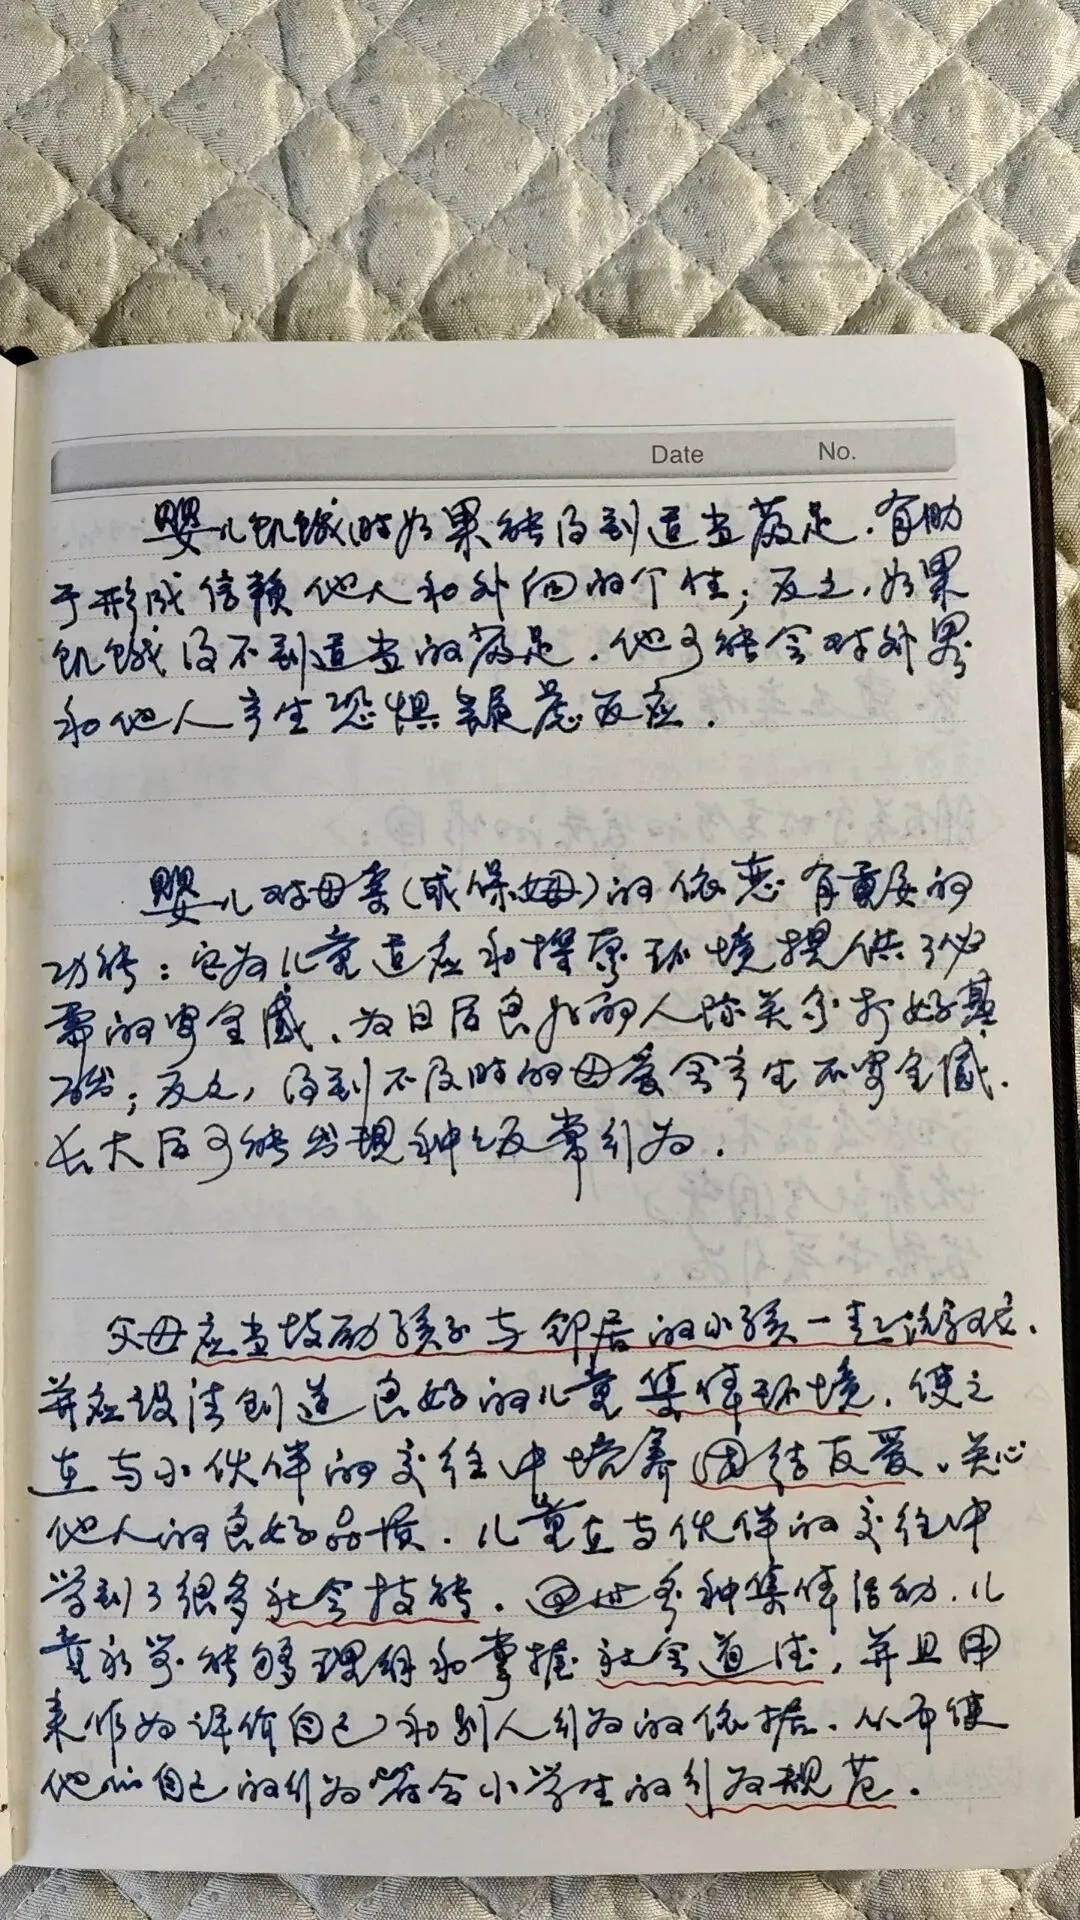 Date No.
婴儿饥饿时如果能得到适当满足，有助
于形成信赖他人和外向的个性；反之，如果
饥饿得不到适当的满足，他可能会对外界
和他人产生恐惧焦虑反应．
婴儿对母亲（或保姆）的依恋有重要的
功能：它为儿童适应和探索环境提供了必
需的安全感、为日后良好的人际关系打好基
础；反之，得到不及时的母爱会产生不安全感．
长大后可能出现种种反常行为．
父母应当鼓励孩子与邻居的小孩一起游戏．
并应设法创造良好的儿童集体环境，使之
在与小伙伴的交往中培养团结友爱、关心
他人的良好品质．儿童在与伙伴的交往中
学到了很多社会技能．通过各种集体活动，儿
童初步能够理解和掌握社会道德，并且用
来作为评价自己和别人行为的依据．从而使
他们自己的行为符合小学生的行为规范．